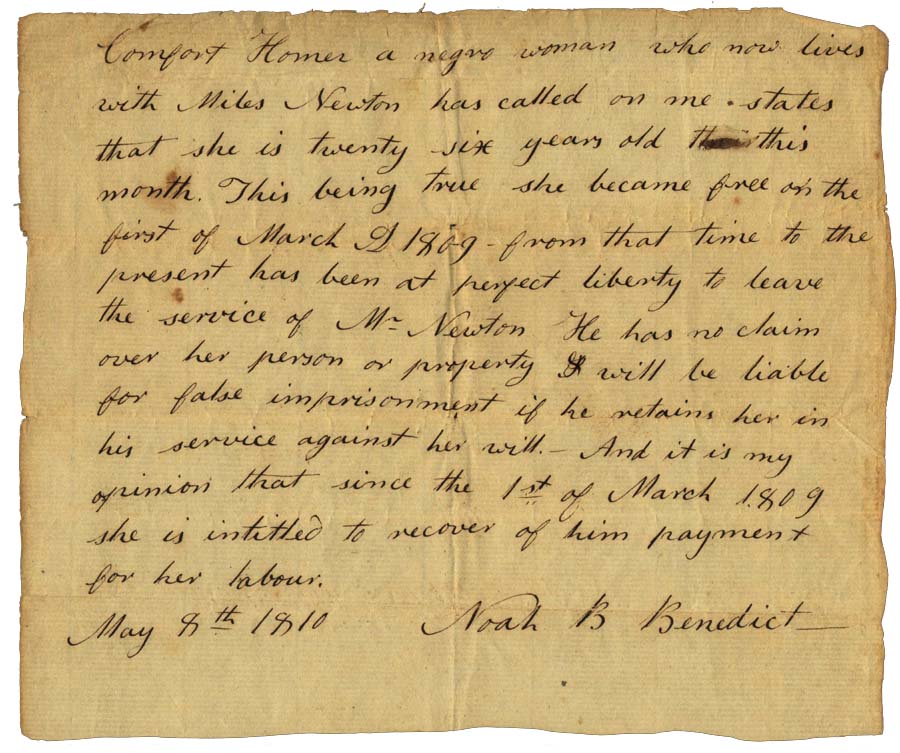 Comfort Homer a negro woman who now lives
with Miles Newton has called on me . states
that she is twenty six years old this
month. This being true she became free on the
first of March 1809 - from that time to the
present has been at perfect liberty to leave
the service of Mr Newton He has no claim
over her person or property & will be liable
for false imprisonment if he retains her in
his service against her will. - And it is my
opinion that since the 1st of March 1809
she is intitled to recover of him payment
for her labour.
May 8th 1810 Noah B Benedict